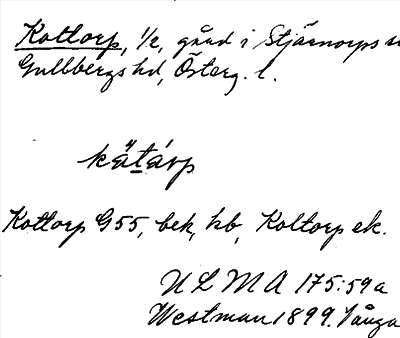 Kottorp, 1/2, gård i Stjärnorps s
Gullbergs hd, Österg. l.
kä́tárp
Kottorp G55, bek, hb, Koltorp ek.
ULMA 175:59a
Westman 1899. Vånga